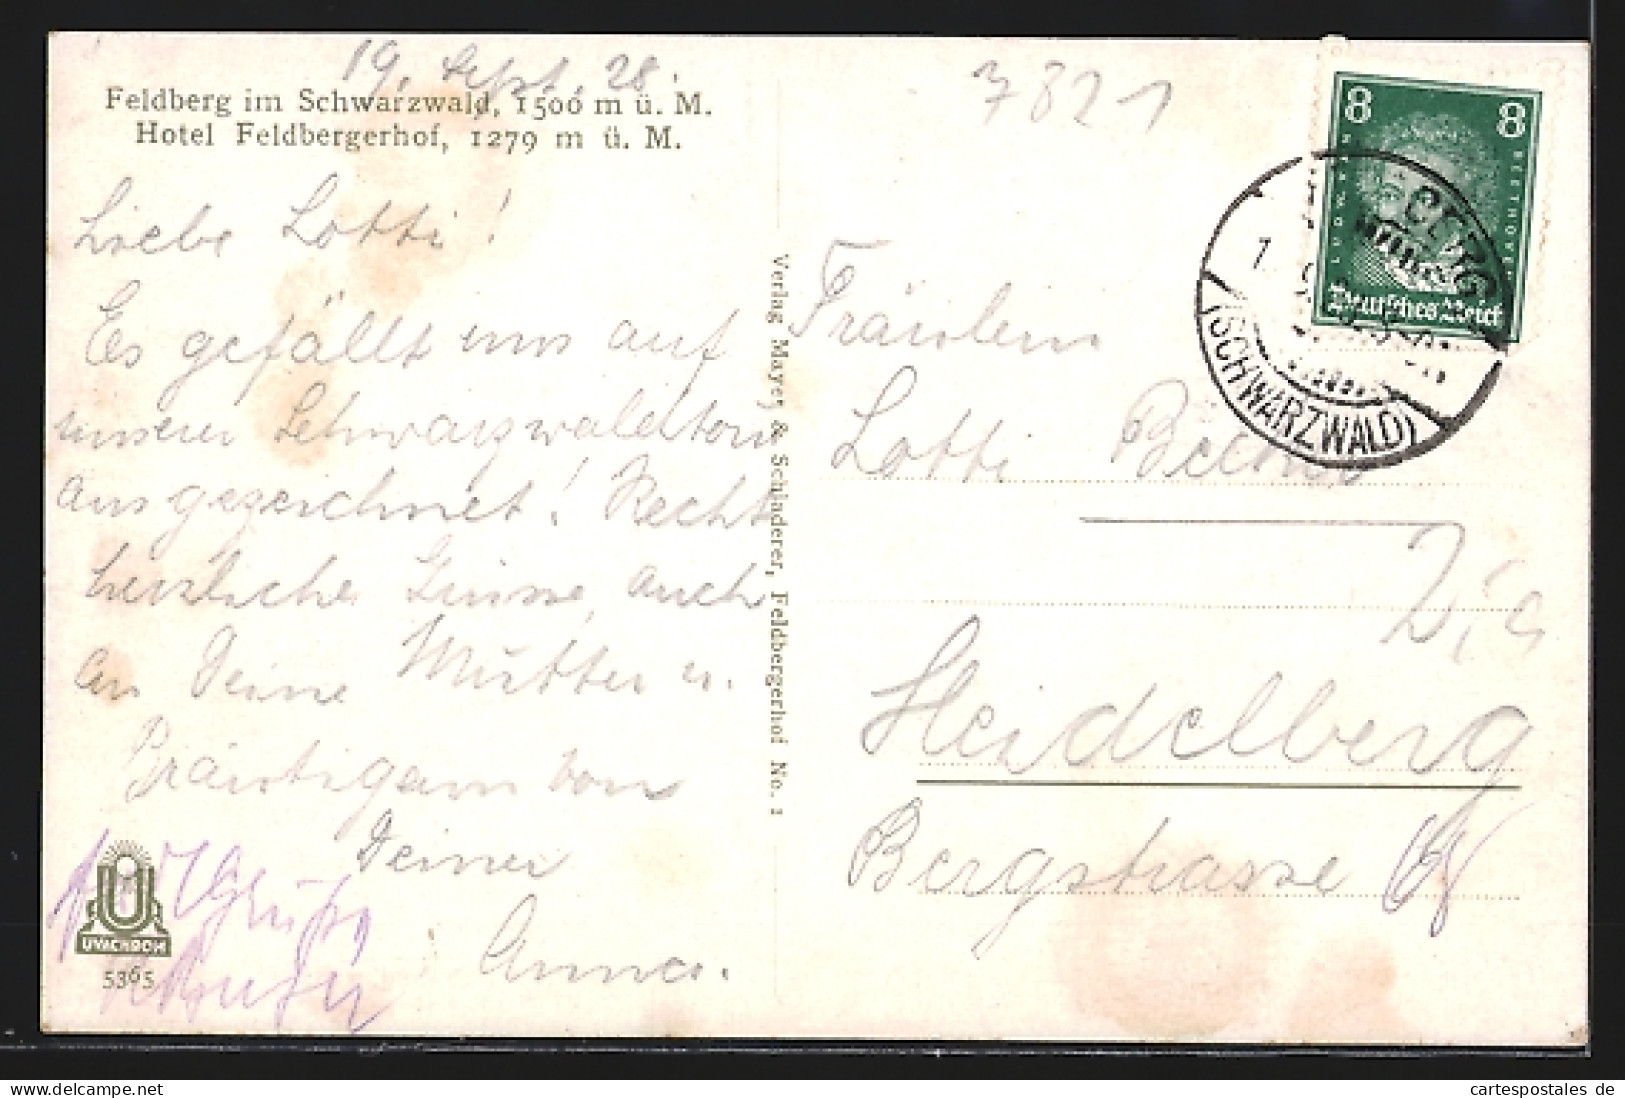 19. Sept. 28.
Feldberg im Schwarzwald, 1500 m ü. M.
Hotel Feldbergerhof, 1279 m ü. M.
Liebe Lotti!
Es gefällt uns auf
unserer Schwarzwaldtour
ausgezeichnet! Recht
herzliche Grüsse, auch
an Deine Mutter u.
Bräutigam von
Deiner
Anna.
Gruß,
UVACHROM
5365
Verlag Mayer & Schladerer, Feldbergerhof No. 1
7821
8 8
LUDW. VAN BEETHOVEN
Deutsches Reich
(SCHWARZWALD)
Fräulein
Lotti
Heidelberg
Bergstrasse 68
cartespostales de